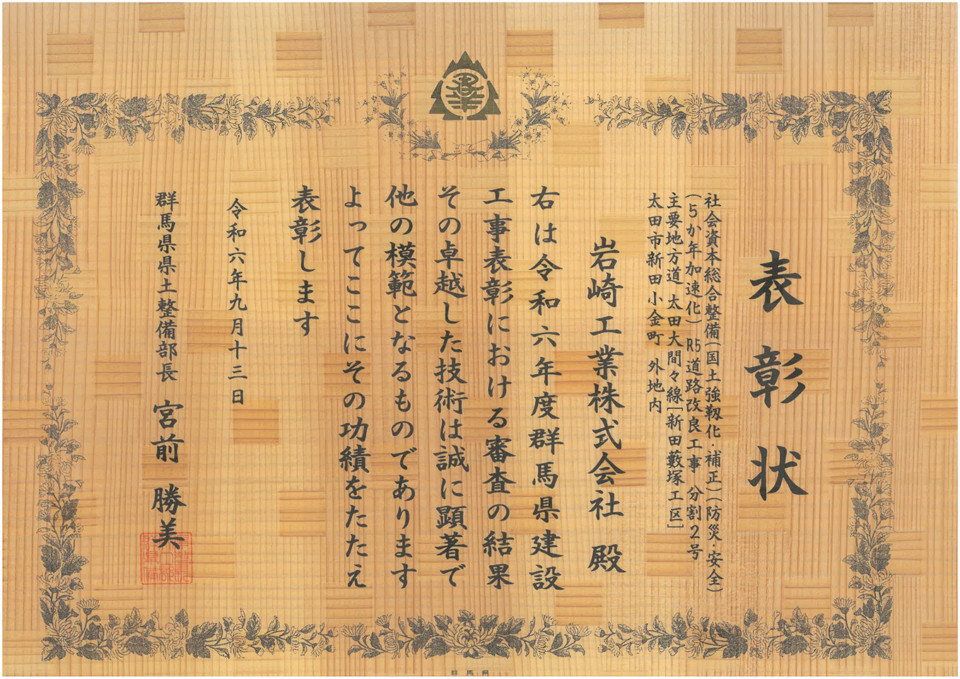 表彰状
社会資本総合整備(国土強靱化・補正)(防災・安全)
(5か年加速化) R5道路改良工事 分割2号
主要地方道 太田大間々線[新田藪塚工区]
太田市新田小金町 外地内
岩崎工業株式会社 殿
右は令和六年度群馬県建設
工事表彰における審査の結果
その卓越した技術は誠に顕著で
他の模範となるものであります
よってここにその功績をたたえ
表彰します
令和六年九月十三日
群馬県県土整備部長 宮前 勝美
群馬県